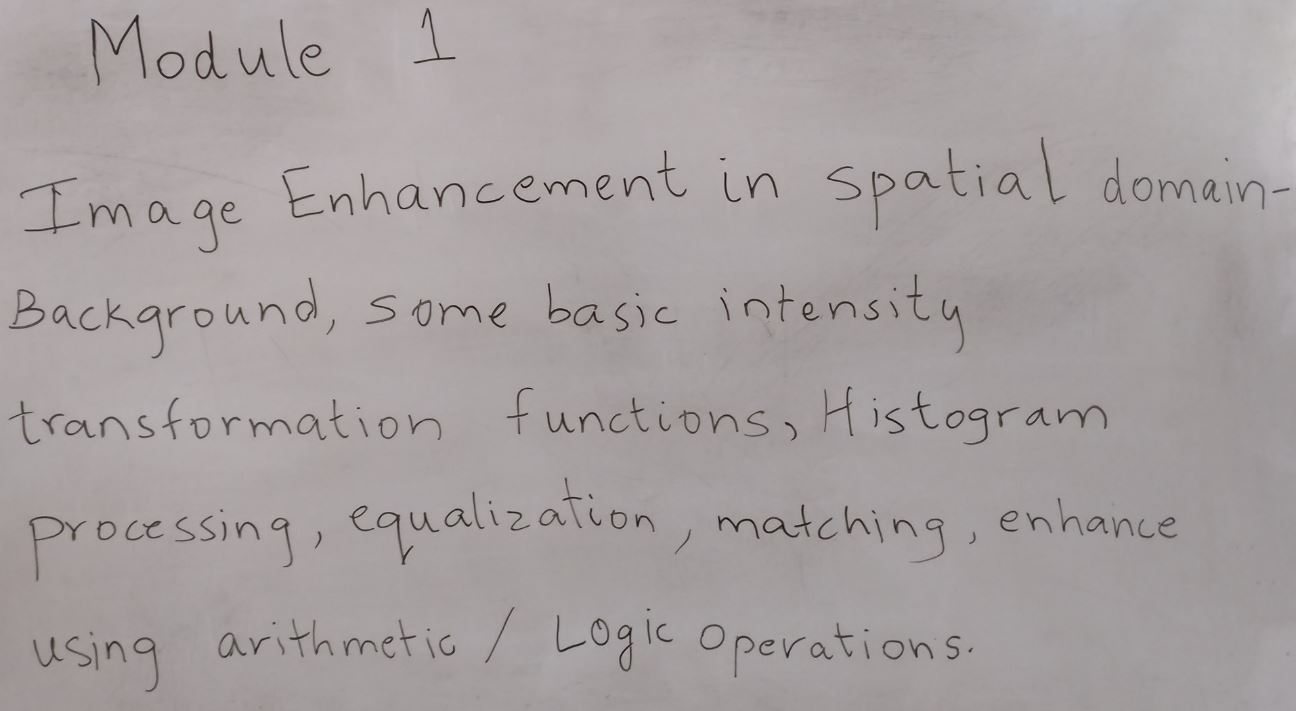 Module 1
Image Enhancement in spatial domain-
Background, some basic intensity
transformation functions, Histogram
processing, equalization, matching, enhance
using arithmetic / Logic Operations.